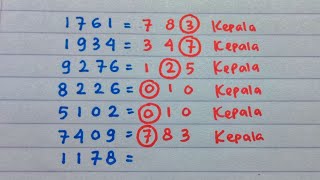 1761 = 783 Kepala
1934 = 347 Kepala
9276 = 125 Kepala
8226 = 010 Kepala
5102 = 010 Kepala
7409 = 783 Kepala
1178 =